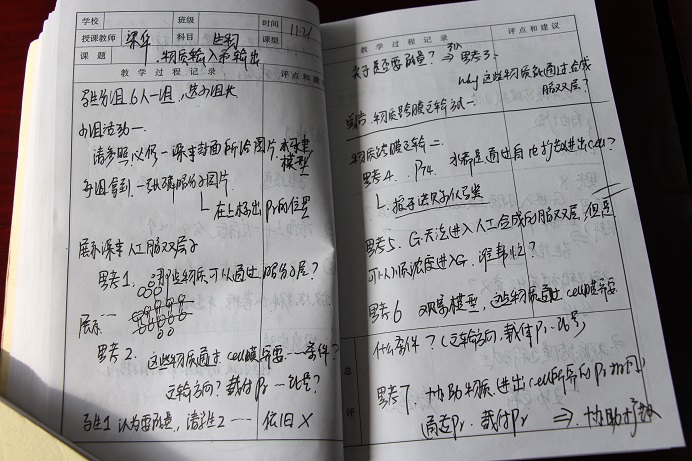 学校 班级 时间 11.21
授课教师 梁华 科目 生物 课型
课题 物质输入和输出
教学过程记录 评点和建议
学生分组 6人一组,选小组长
小组活动一
请参照必修一课本封面所绘图片,
模型
每组拿到一张磷脂分子图片
在上标出Pr的位置
展示课本人工脂双层
思考1. 哪些物质可以通过脂分子层?
展示
思考2. 这些物质通过cell膜需要……条件?
运输方向?载体Pr 能量?
学生1 认为要能量,请学生2 …… 依旧X
教学过程记录 评点和建议
关于是否要能量? ⇒ 思考3:
why 这些物质能通过合成
脂双层?
总结 物质跨膜运输方式一.
物质跨膜运输二
思考4. P74. 水都是通过自由扩散进出cell?
思考5. G无法进入人工合成的脂双层,但是
可以
思考6 观察模型,这些物质通过cell膜需要
什么条件?(运输方向,载体Pr,能量)
总评
思考7. 协助物质进出cell所需的Pr
通道Pr. 载体Pr ⇒ 协助扩散